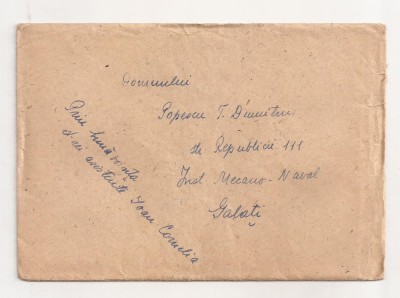 Domnului
Popescu T. Dumitru
str. Republicii 111
Inst. Mecano-Naval
Galați
Prin bunăvoința
d-nei asistente Ioan Cornelia